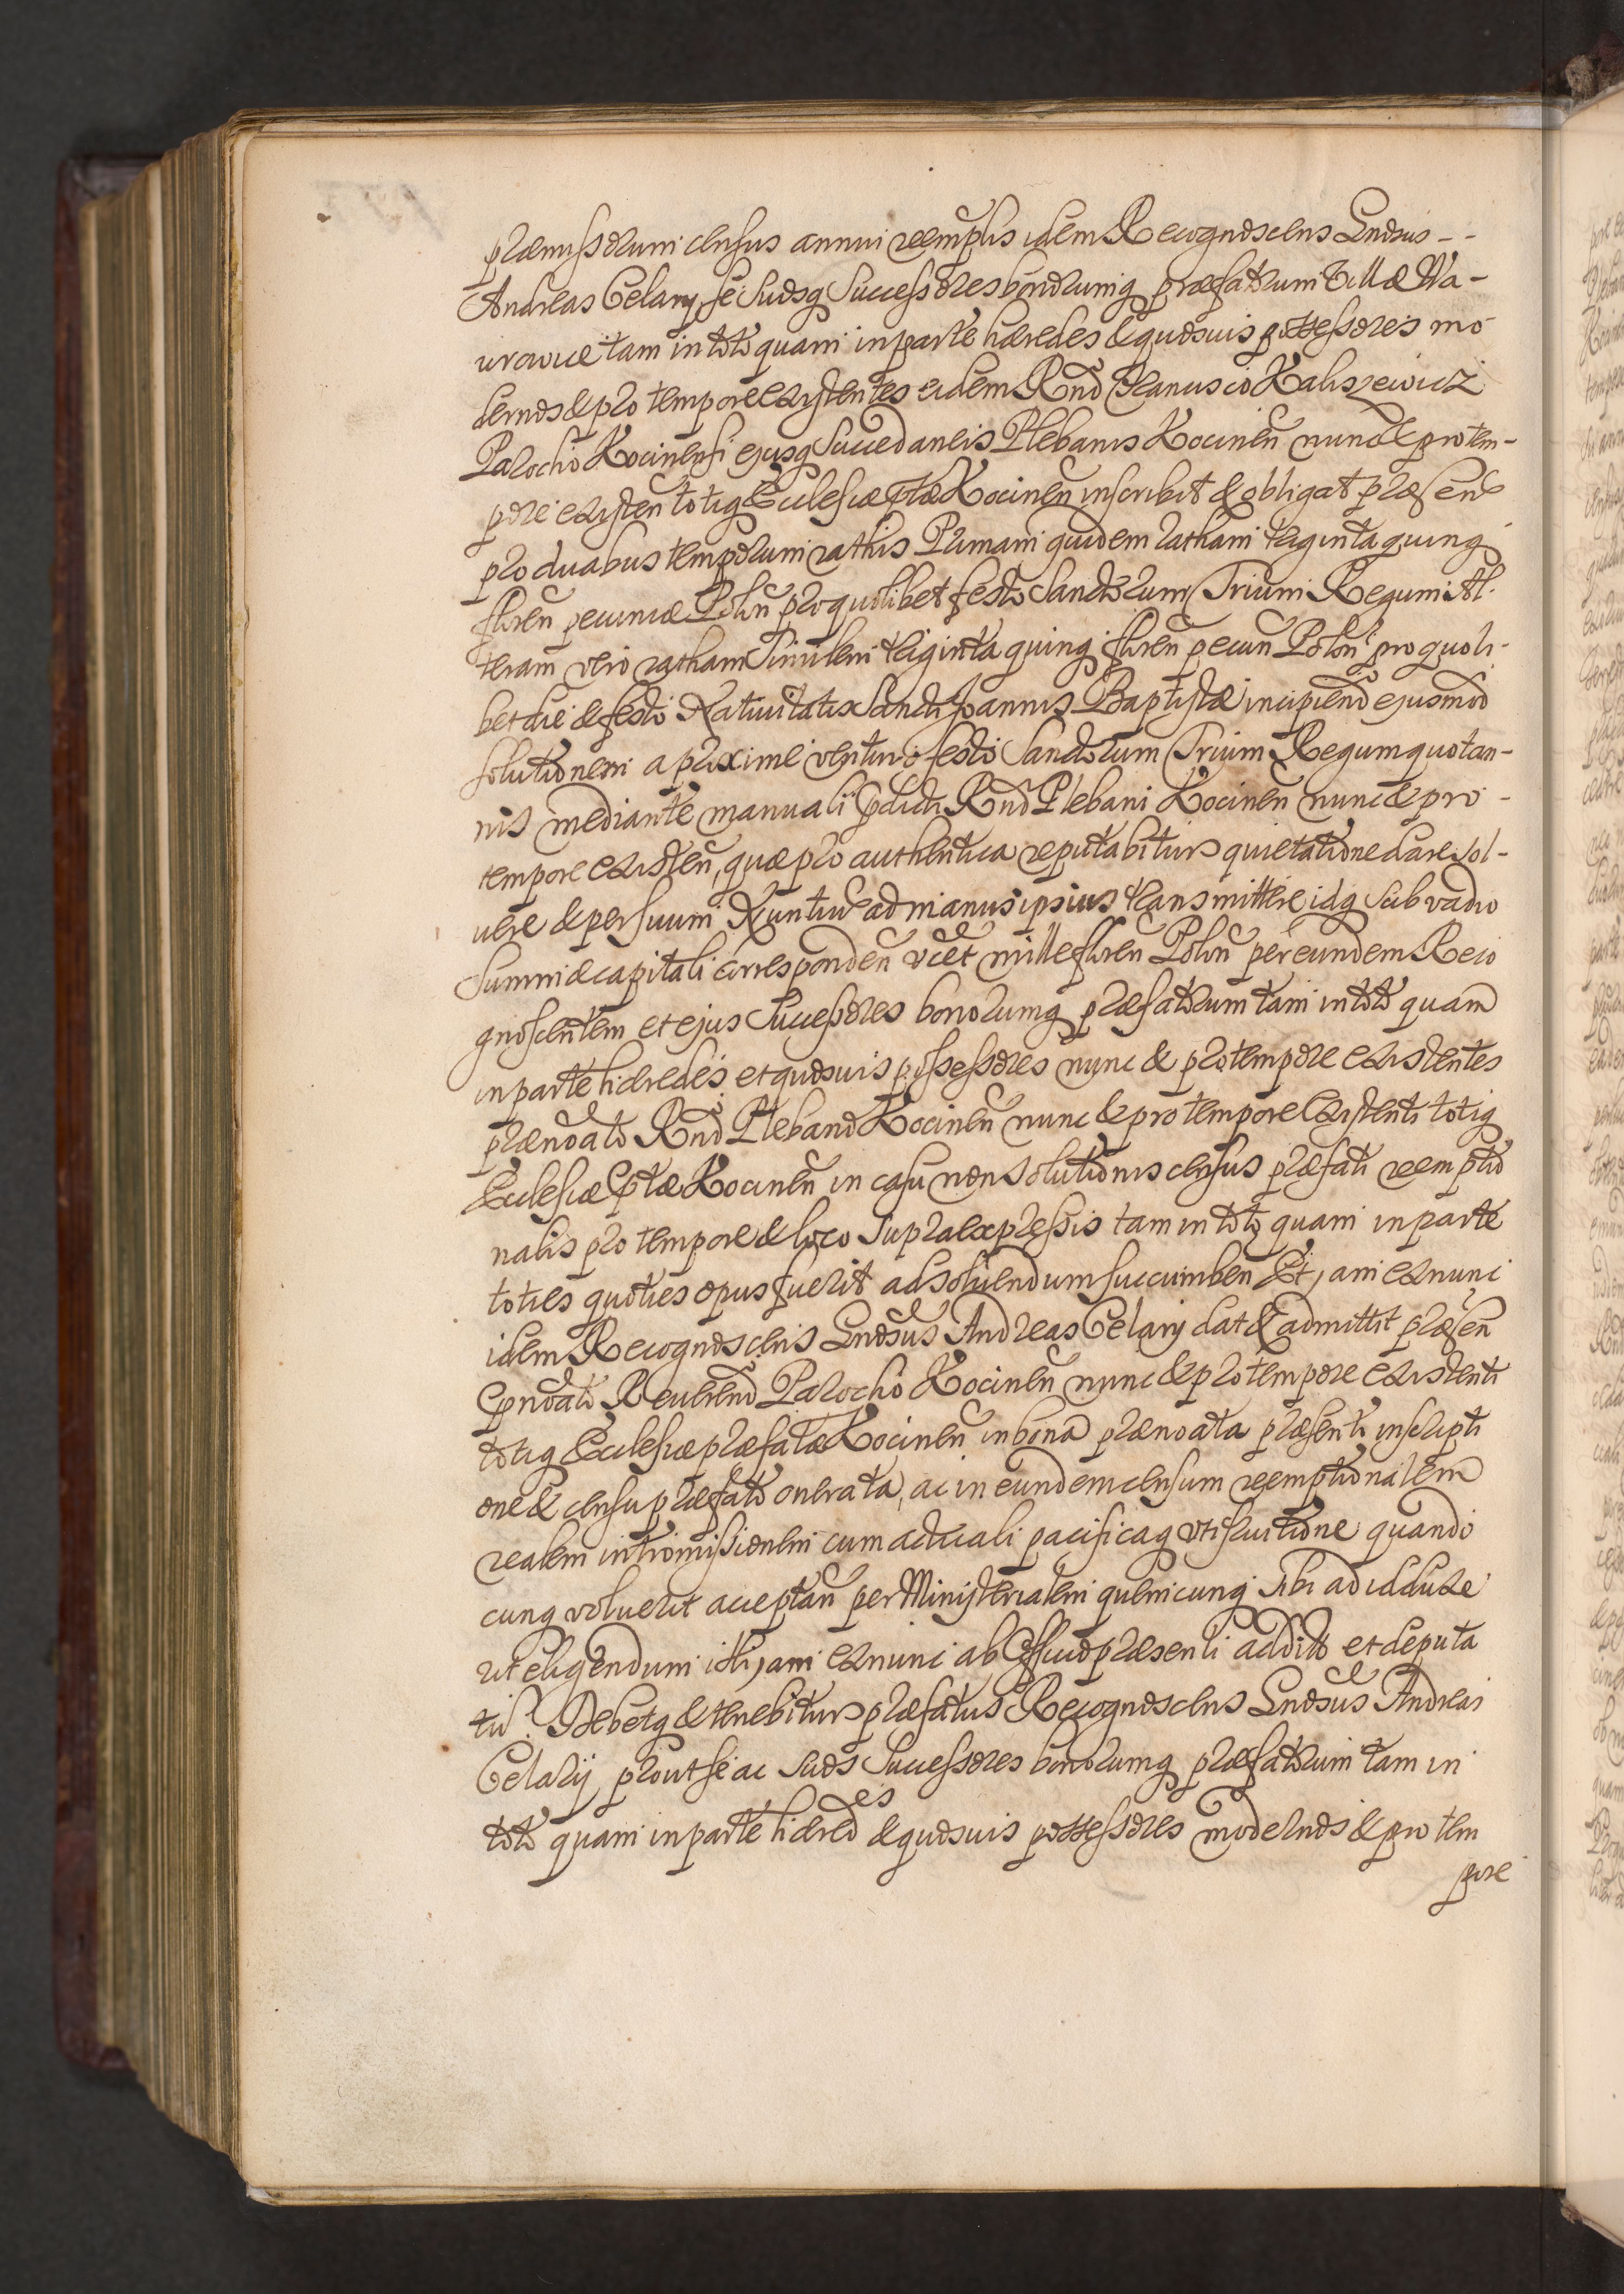 præmissorum census annui reemptis idem Recognoscens Gnosus - -
Andreas Celary se suosq Successores bonorumq præfatorum Villæ Wa-
wrowice tam in toto quam in parte hæredes & quosuis possessores mo
dernos & pro tempore existentes eidem Rnd Kaliszewicz
Parocho Kocinensi ejusq Succedaneis Plebanis Kocinen nunc & pro tem-
pore existen totiq Ecclesiæ ptæ Kocinen inscribit & obligat præsen
pro duabus temporum rathis Primam quidem ratham triginta quinq
floren pecuniæ Polon pro quolibet festo Sanctorum Trium Regum Al-
teram vero ratham similem triginta quinq floren pecun Polon pro quoli-
bet die & festo Natiuitatis Sancti Joannis Baptistæ incipiend ejusmod
solutionem a proxime venturo festo Sanctorum Trium Regum quotan-
nis mediante manuali pdicti Rnd Plebani Kocinen nunc & pro -
tempore existen, quæ pro authentica reputabitur quietatione dare sol-
uere & per suum Nuntium ad manus ipsius transmittere idq sub vadio
Summæ capitali corresponden vcet mille floren Polon per eundem Reco
gnoscentem et ejus Successores bonorumq præfatorum tam in toto quam
in parte hæredes et quosuis possessores nunc & pro tempore existentes
prænoato Rnd Plebano Kocinen nunc & pro tempore existenti totiq
Ecclesiæ ptæ Kocinen in casu non solutionis census præfati reemptio
nalis pro tempore & loco supra expressis tam in toto quam in parte
toties quoties opus fuerit ad soluendum succumben Et jam ex nunc
idem Recognoscens Gnosus Andreas Celary dat & admittit præsen
pnoato Reuerend Parocho Kocinen nunc & pro tempore existenti
totiq Ecclesiæ præfatæ Kocinen in bona prænoata præsenti inscripti
one & censu præfato onerata, ac in eundem censum reemptionalem
realem intromissionem cum actuali pacificaq vtifruitione quando
cunq voluerit acceptan per Ministerialem quemcunq sibi ad id duxe
rit eligendum jam ex nunc ab Officio præsenti addito et deputa
to Debetq & tenebitur præfatus Recognoscens Gnosus Andreas
Celary prout se ac suos Successores bonorumq præfatorum tam in
toto quam in parte hæredes & quosuis possessores modernos & pro tem
pore